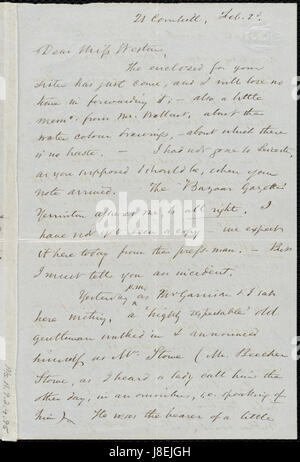 21 Cornhill, Feb. 2d.
Dear Miss Weston,
The enclosed for your
sister has just come, and I will lose no
time in forwarding it; - also a little
memo. from Mr. Wallcut, about the
water colour drawings, - about which there
is no haste. - I had not gone to Leicester,
as you supposed I should be, when your
note arrived. The "Bazaar Gazette"
Yerrinton assures me is all right. I
have not yet seen a copy - we expect
it here today from the press-man. - But
I must tell you an incident.
Yesterday p.m. as Mr Garrison & I sat
here writing, a highly respectable old
gentleman walked in & announced
himself as Mr. Stowe (Mr. Beecher
Stowe, as I heard a lady call him the
other day, in an omnibus, i.e. speaking of
him). He was the bearer of a little
Ms. A.9.2.4, 95